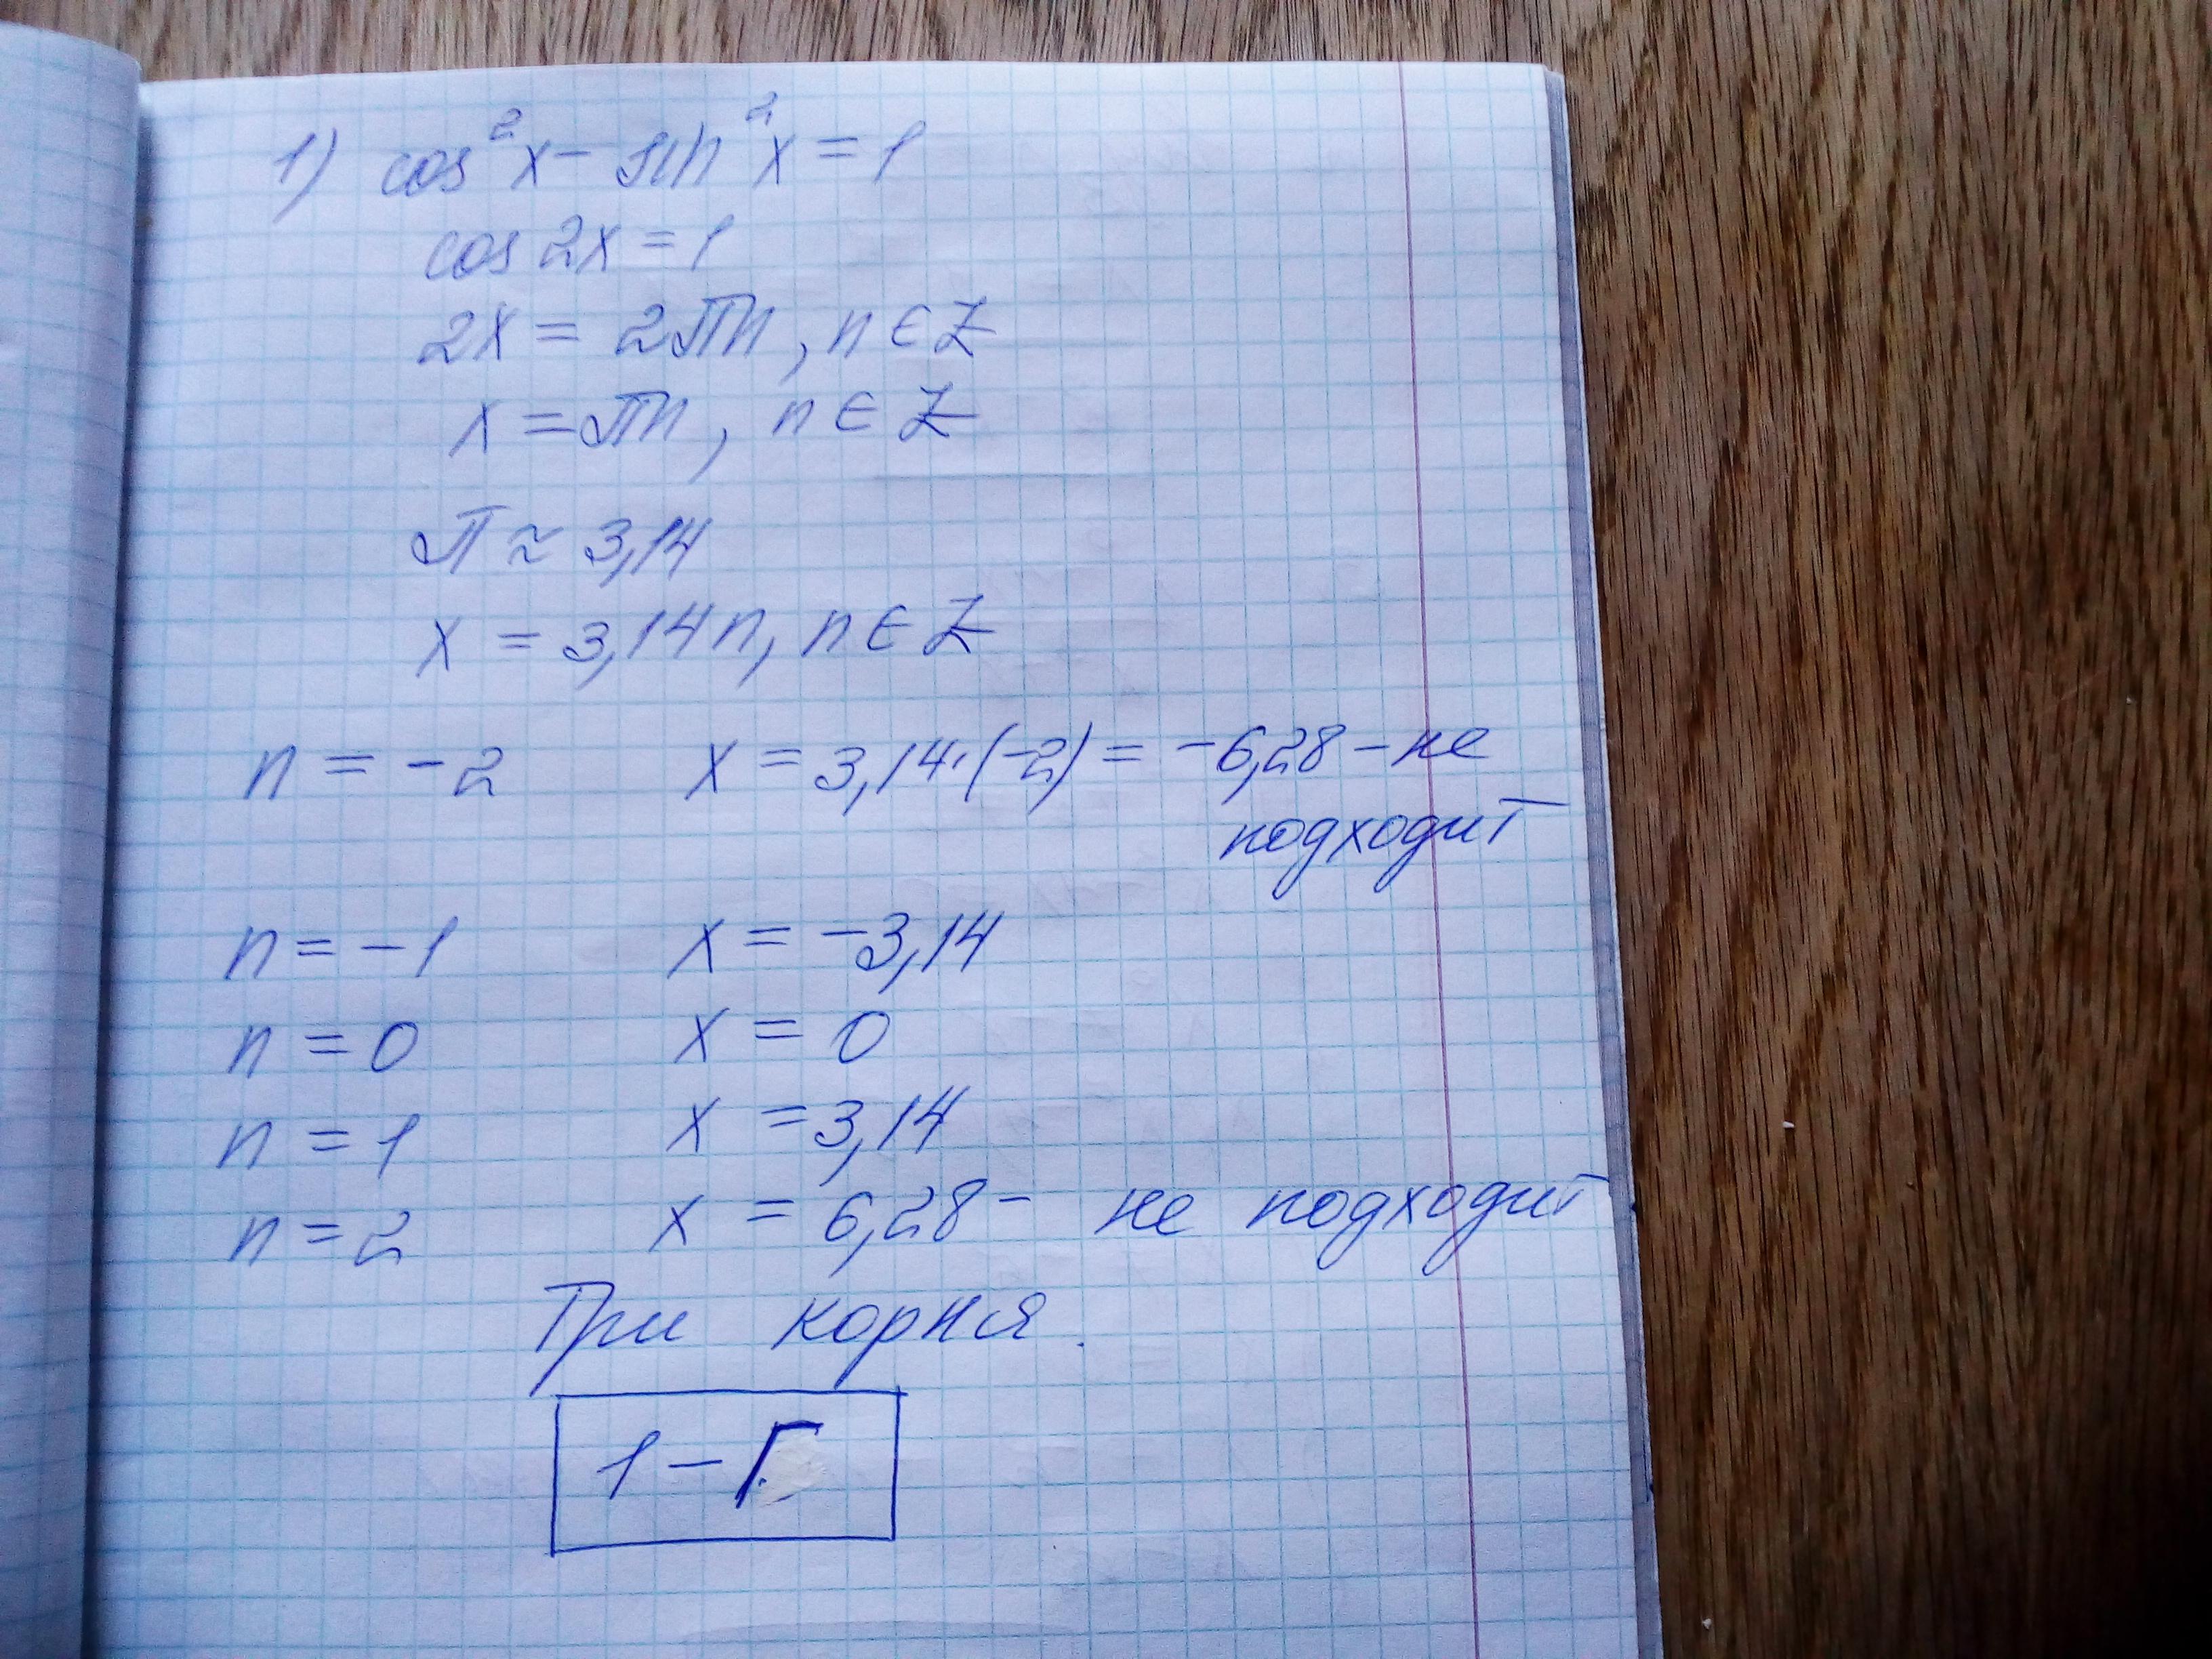 1) cos²x - sin²x = 1
cos 2x = 1
2x = 2πn, n ∈ Z
x = πn, n ∈ Z
π ≈ 3,14
x = 3,14n, n ∈ Z
n = -2 x = 3,14·(-2) = -6,28 - не
подходит
n = -1 x = -3,14
n = 0 x = 0
n = 1 x = 3,14
n = 2 x = 6,28 - не подходит
Три корня.
1 - Г